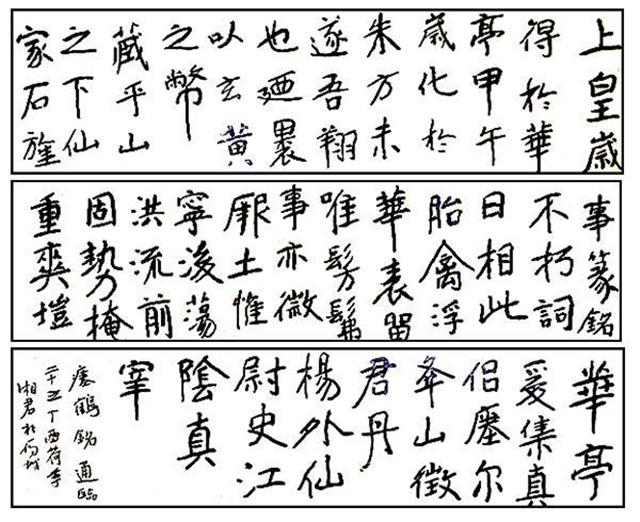 上皇歲
得於華
亭甲午
歲化於
朱方未
遂吾翔
也廼裹
以玄黃
之幣
藏乎山
之下仙
家石旌
事篆銘
不朽詞
曰相此
胎禽浮
華表留
唯髣髴
事亦微
厥土惟
寧蕩
洪流前
固勢掩
重爽塏
華亭
爰集真
侣尔
夅山徵
君丹
楊外仙
尉史江
陰真
宰
瘞鶴銘通臨
丁酉荷季
湘君於